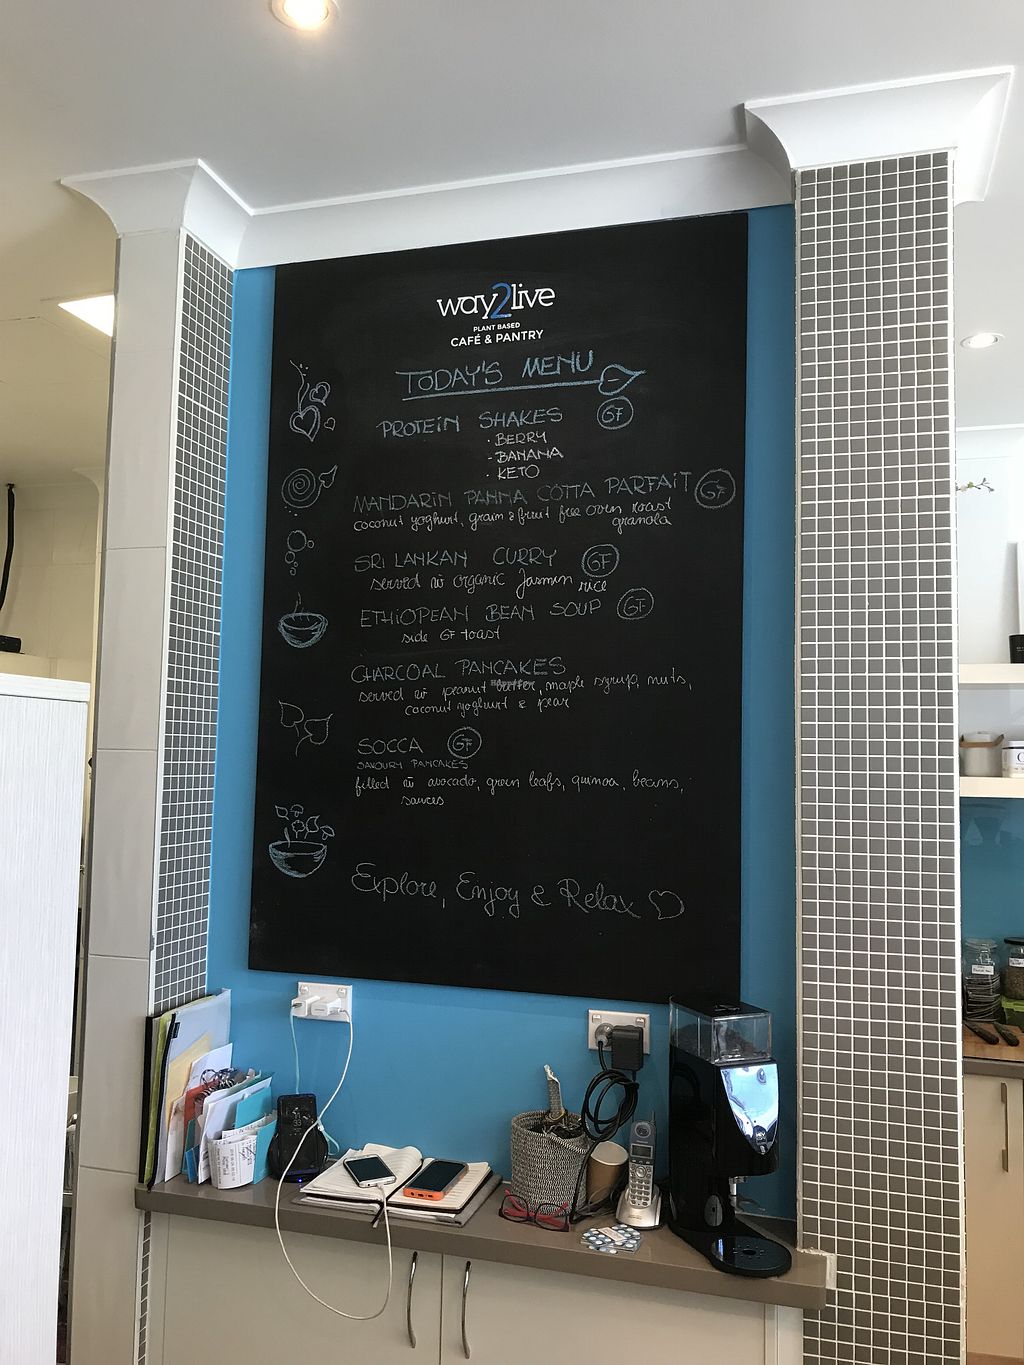 way2live
PLANT BASED
CAFÉ & PANTRY
TODAY'S MENU
PROTEIN SHAKES GF
· BERRY
- BANANA
· KETO
MANDARIN PANNA COTTA PARFAIT GF
coconut yoghurt, grain & fruit free oven roast
granola
SRI LANKAN CURRY GF
served w organic Jasmin rice
ETHIOPEAN BEAN SOUP GF
side GF toast
CHARCOAL PANCAKES
served w peanut butter, maple syrup, nuts,
coconut yoghurt & pear
SOCCA GF
SAVOURY PANCAKES
filled w avocado, green leafs, quinoa, beans,
sauces
Explore, Enjoy & Relax